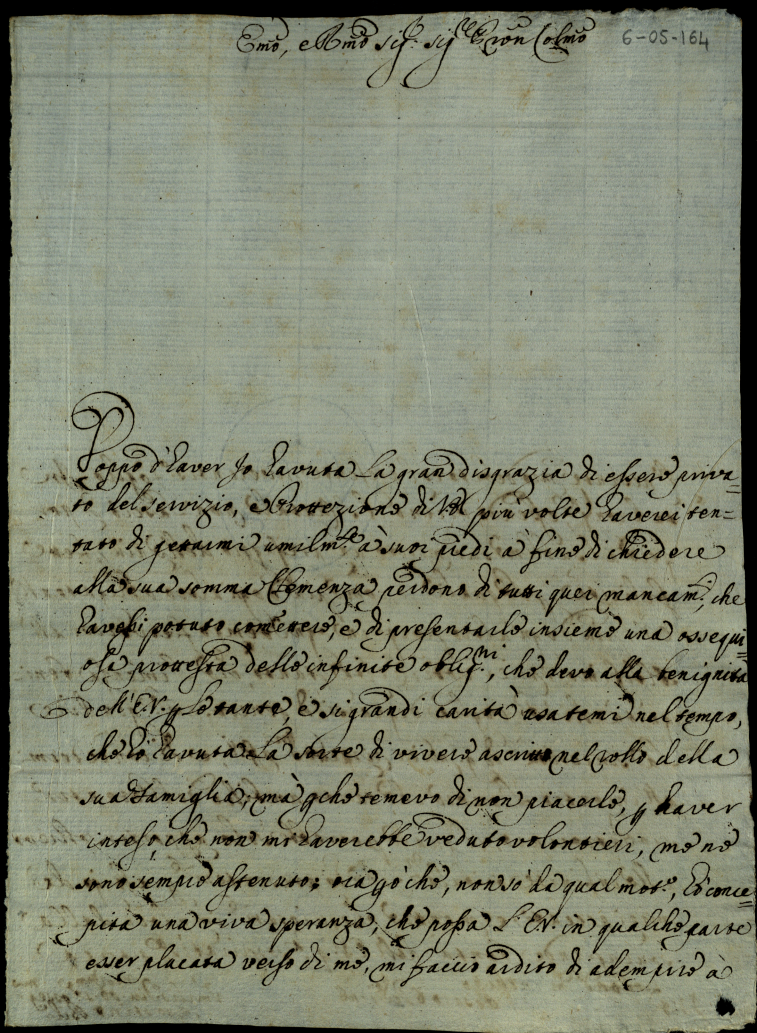 Emo, e Rmo sig.r sig.r Pron Colmo
6-05-164
Doppo d'haver Io havuta la gran disgrazia di essere priva=
to del servizio, e Protezione di V.E. più volte haverei ten=
tato di gettarmi umilm.te à suoi piedi à fine di chiedere
alla sua somma Clemenza perdono di tutti quei mancam.ti, che
havessi potuto comettere, e di presentarle insieme una ossequi=
osa protesta delle infinite oblig.ni, che devo alla benignità
dell'E.V. p le tante, e si grandi carità usatemi nel tempo,
che hò havuta la sorte di vivere ascritto nel rollo della
sua famiglia; mà pche temevo di non piacerle, p haver
inteso che non mi haverebbe veduto volontieri, me ne
sono sempre astenuto; ora pò che, non sò da qual mot.o, hò conce=
pita una viva speranza, che possa l'E.V. in qualche parte
esser placata verso di me, mi faccio ardito di adempire à